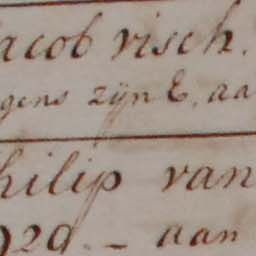 acob visch.
gens zijn E. aa
hilip van
929 - aan